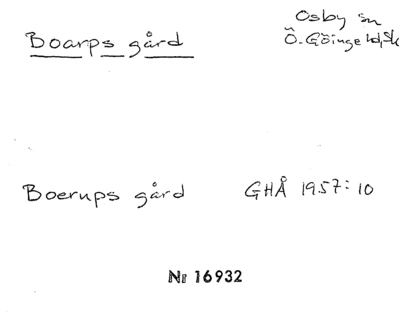 Boarps gård
Osby sn
Ö. Göinge hd, Sk
Boerups gård GHÅ 1957:10
Nr 16932